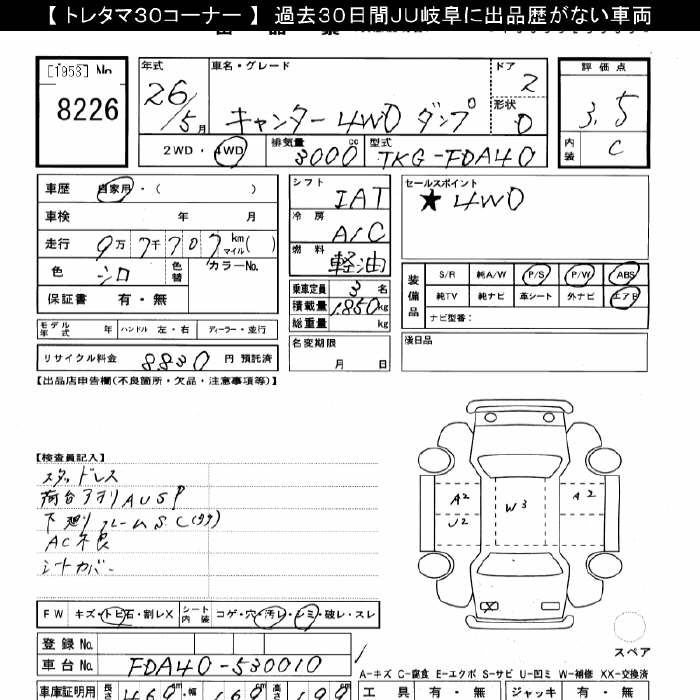 【 トレタマ30コーナー 】 過去30日間JU岐阜に出品歴がない車両
[1953] No
8226
年式 26/5月
車名・グレード キャンター 4WD ダンプ
ドア 2
形状 D
評価点 3.5
内装 C
2WD・4WD 排気量 3000 cc 型式 TKG-FDA40
車歴 自家用・( )
車検 年 月
走行 9万7千707 km マイル( )
色 シロ 色替 カラーNo.
保証書 有・無
シフト IAT
冷房 A/C
燃料 軽油
乗車定員 3名
積載量 1850kg
総重量 kg
セールスポイント
★ 4WD
装備品 S/R 純A/W P/S P/W ABS
純TV 純ナビ 革シート 外ナビ エアB
ナビ型番:
モデル年式 年 ハンドル 左・右 ディーラー・並行
名変期限 月 日
後日品
リサイクル料金 8830 円 預託済
【出品店申告欄(不良箇所・欠品・注意事項等)】
【検査員記入】
スタッドレス
荷台アオリAUSP
下廻りフレームSC(タタ)
AC不良
シートカバー
A2 W3 A2
U2
X
FW キズ・トビ石・割レX シート内装 コゲ・穴・汚レ・シミ・破レ・スレ
スペア
登録No.
車台No. FDA40-530010
A-キズ C-腐食 E-エクボ S-サビ U-凹ミ W-補修 XX-交換済
車庫証明用 長さ 469 cm 幅 169 cm 高さ 199 cm
工具 有・無 ジャッキ 有・無